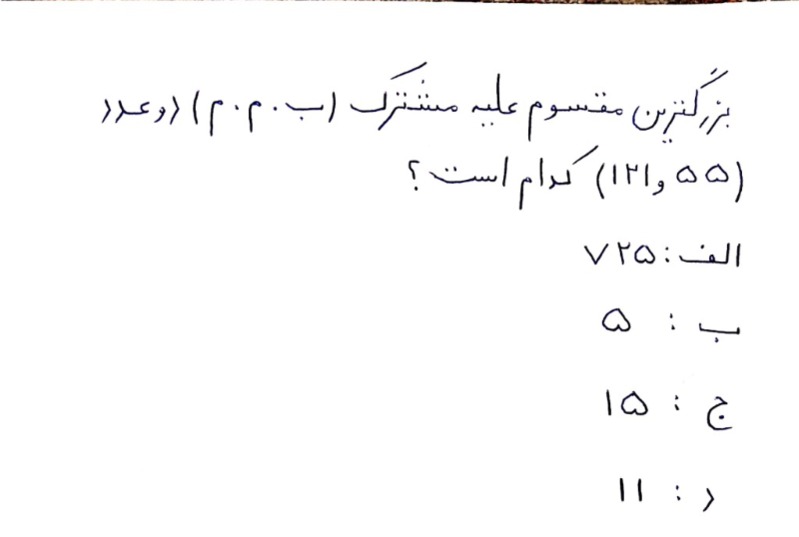 بزرگترین مقسوم علیه مشترک (ب.م.م) دو عدد
(۵۵ و ۱۲۱) کدام است؟
الف: ۷۲۵
ب: ۵
ج: ۱۵
د: ۱۱